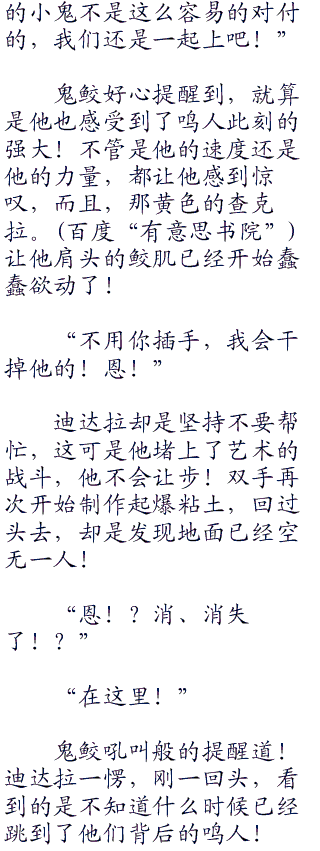 的小鬼不是这么容易的对付
的，我们还是一起上吧！”
鬼鲛好心提醒到，就算
是他也感受到了鸣人此刻的
强大！不管是他的速度还是
他的力量，都让他感到惊
叹，而且，那黄色的查克
拉。(百度“有意思书院”)
让他肩头的鲛肌已经开始蠢
蠢欲动了！
“不用你插手，我会干
掉他的！恩！”
迪达拉却是坚持不要帮
忙，这可是他堵上了艺术的
战斗，他不会让步！双手再
次开始制作起爆粘土，回过
头去，却是发现地面已经空
无一人！
“恩！？消、消失
了！？”
“在这里！”
鬼鲛吼叫般的提醒道！
迪达拉一愣，刚一回头，看
到的是不知道什么时候已经
跳到了他们背后的鸣人！